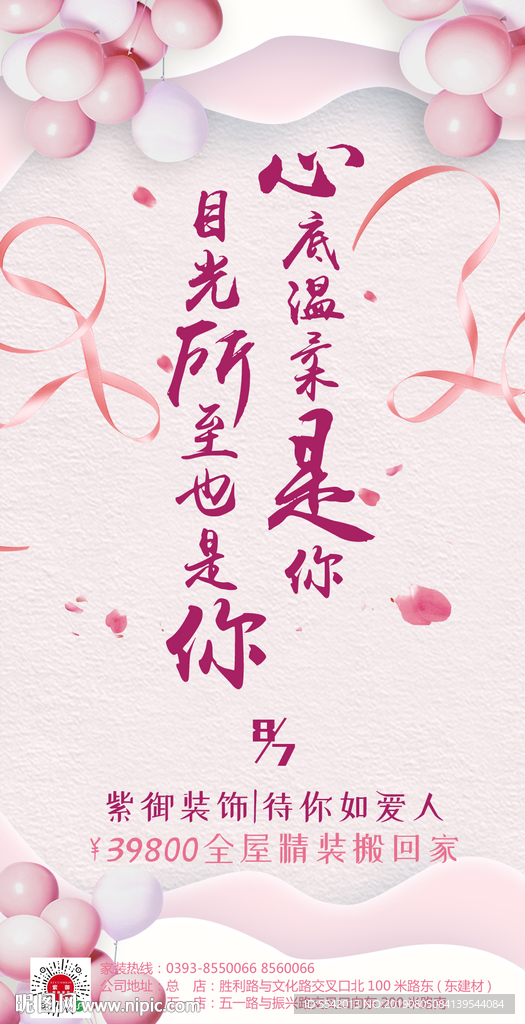 心底温柔是你
目光所至也是你
8/7
紫御装饰|待你如爱人
¥39800全屋精装搬回家
家装热线：0393-8550066 8560066
公司地址：总 店：胜利路与文化路交叉口北 100 米路东 ( 东建材 )
店：五一路与振兴路
昵图网
www.nipic.com
NO:20190805084139544084